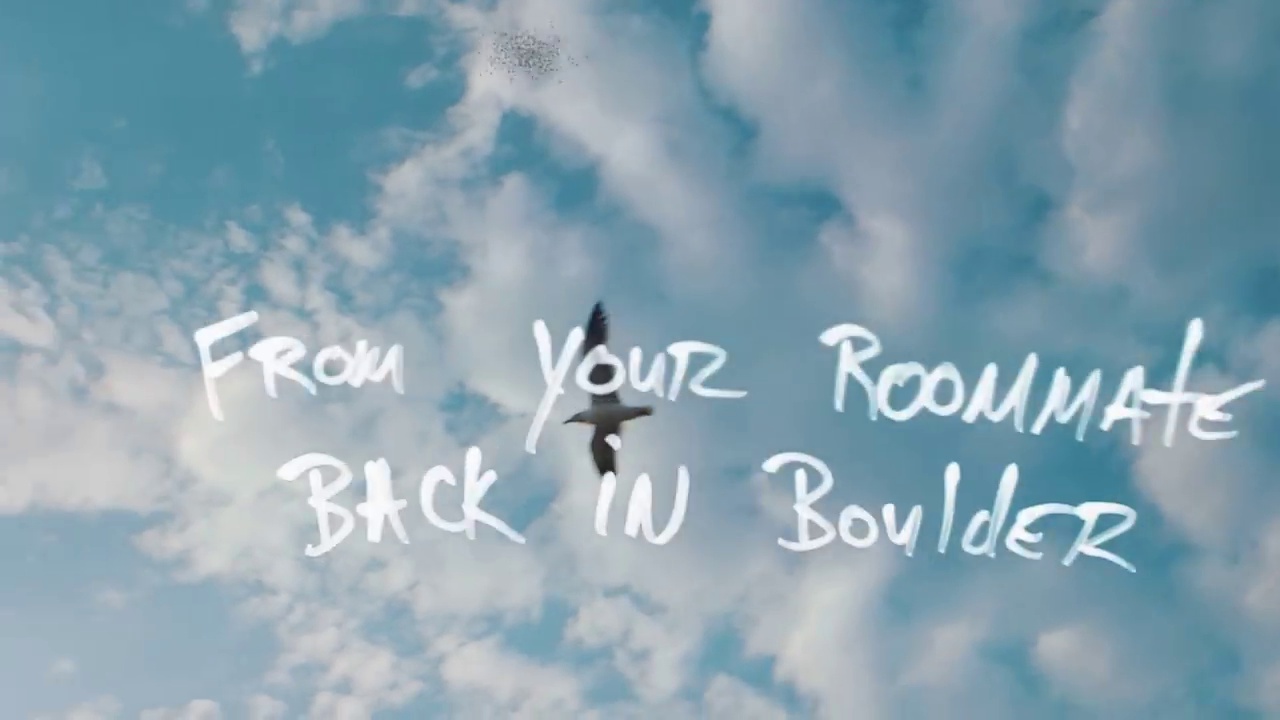 FROM YOUR ROOMMATE
BACK iN BoulDER